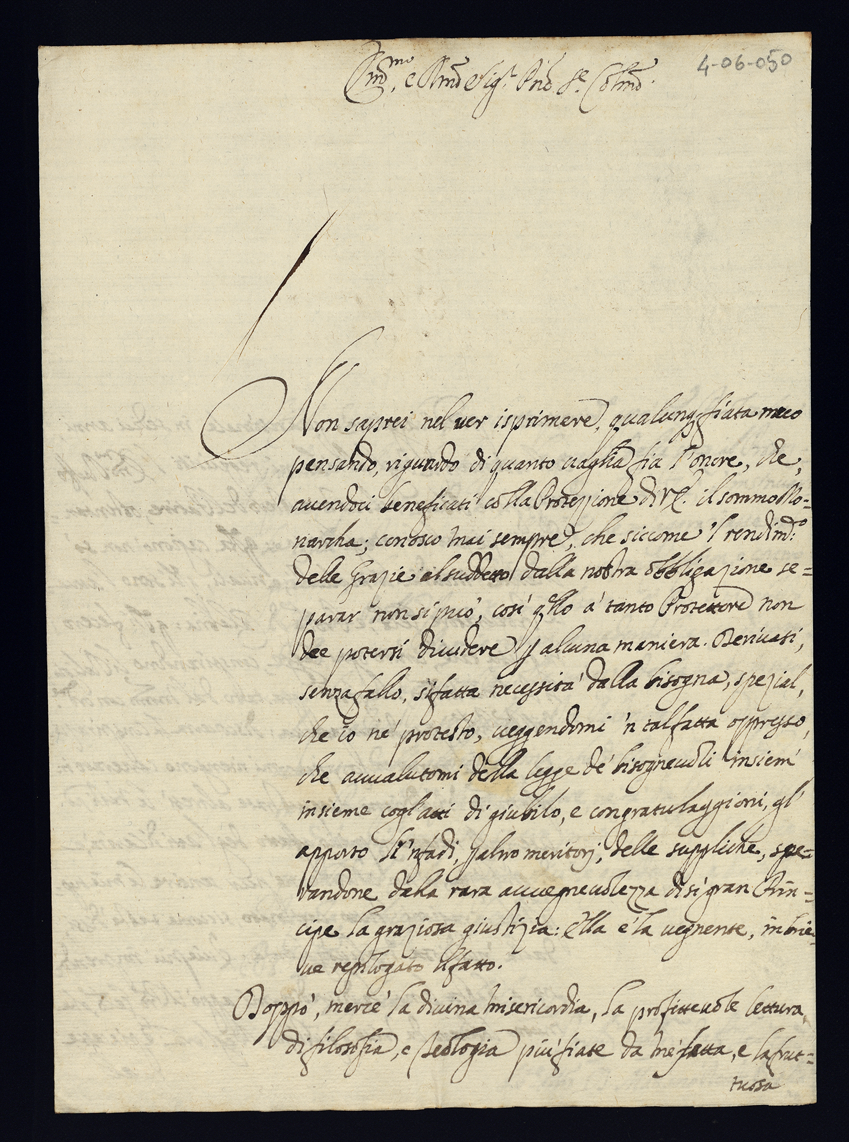 4-06-050
Em.mo, e R.mo Sig.r P.ne Col.mo
Non saprei nel ver isprimere, qualunq fiata meco
pensando, riguardo di quanto vaglia sia l'onore, che,
avendoci beneficati colla Protezzione di V.E. il sommo Mo=
narcha; conosco mai sempre, che siccome 'l rendim.to
delle Grazie al suddetto dalla nostra obbligazione se=
parar non si puo', così q.llo a' tanto Protettore non
dee potersi dividere p alcuna maniera. Derivasi,
senza fallo, sifatta necessità dalla bisogna, spezial,
che io ne' protesto, veggendomi 'n talfatta oppresso,
che avvalutomi della legge de' bisognevoli insiem'
insieme cogl'atti di giubilo, e congratulaggioni, gl'
apporto li 'nfadi, p altro meritorj, delle suppliche, spe=
randone dalla rara avvegnevolezza di sì gran Prin=
cipe la graziosa giustizia: ella è la vegnente, in brie=
ve repilogato il fatto.
Doppo', mercè la divina misericordia, la profittevole lettura,
di filosofia, e teologia più fiate da me fatta, e la frut=
tuosa